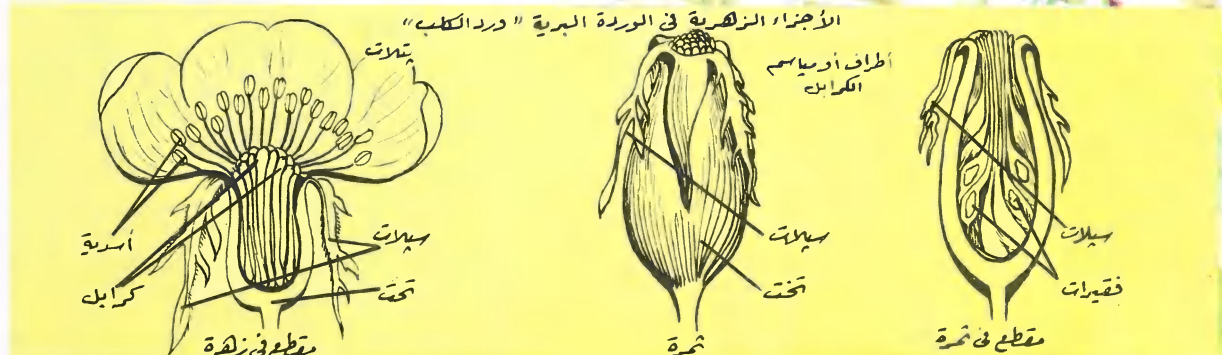 الأجزاء الزهرية في الوردة البرية "ورد الكلب"
بتلات
أسدية
كرابل
سبلات
تخت
مقطع في زهرة
أطراف أو مياسم
الكرابل
سبلات
تخت
ثمرة
سبلات
فقيرات
مقطع في ثمرة